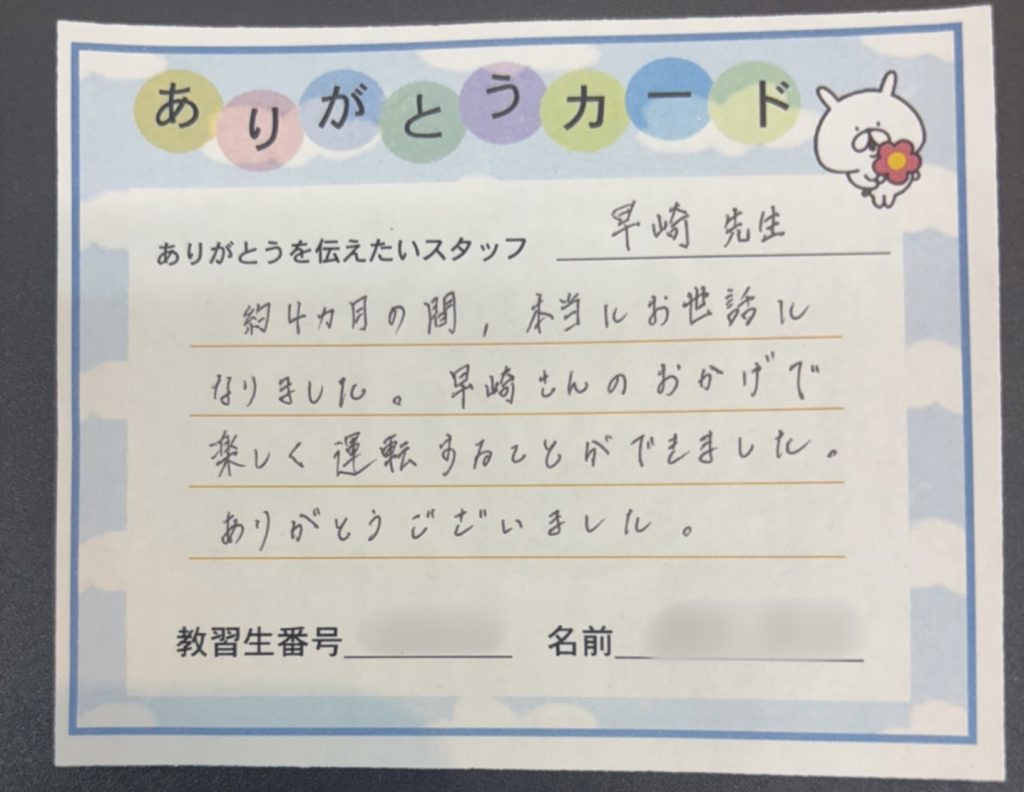 ありがとうカード
ありがとうを伝えたいスタッフ 早崎 先生
約4カ月の間,本当にお世話に
なりました。早崎さんのおかげで
楽しく運転することができました。
ありがとうございました。
教習生番号 名前